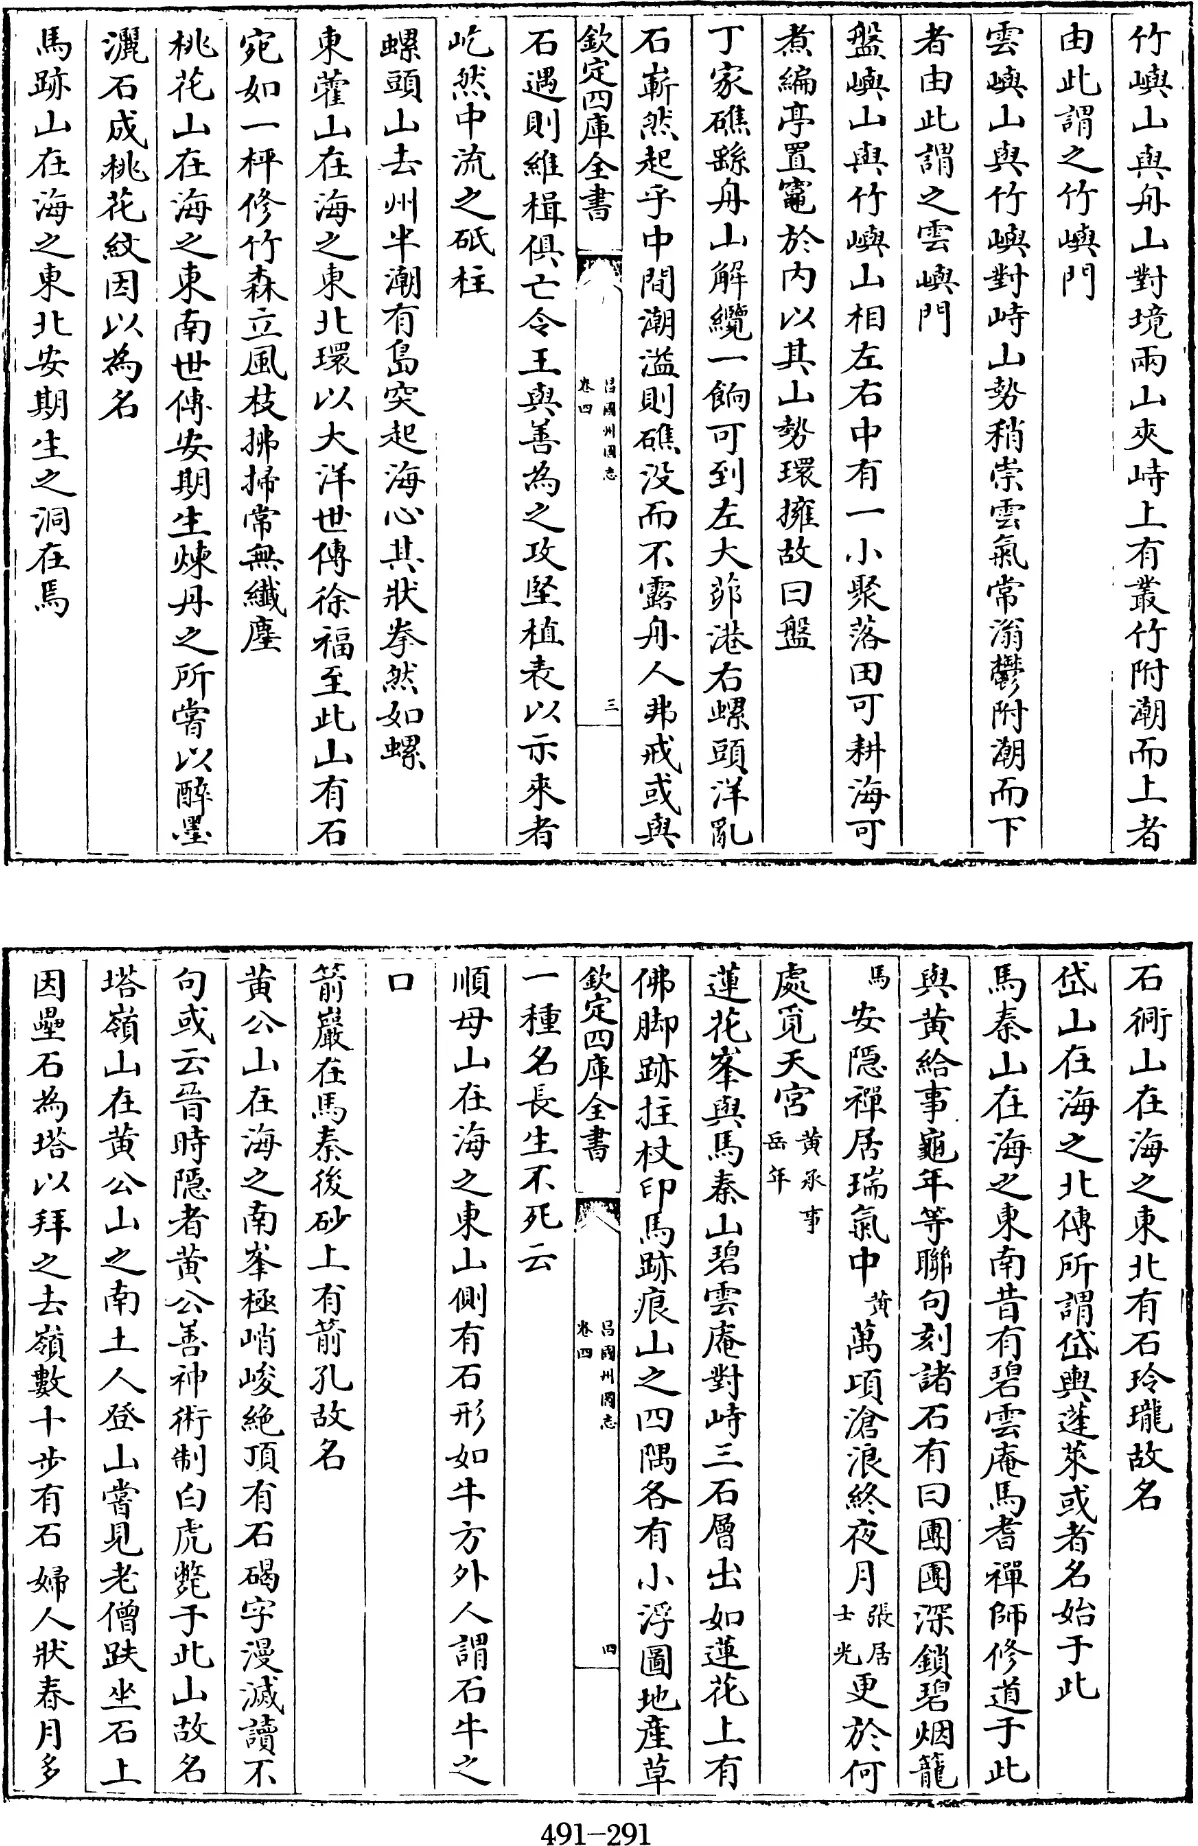 竹嶼山與舟山對境兩山夾峙上有叢竹附潮而上者
由此謂之竹嶼門
雲嶼山與竹嶼對峙山勢稍崇雲氣常滃鬱附潮而下
者由此謂之雲嶼門
盤嶼山與竹嶼山相左右中有一小聚落田可耕海可
煮編亭置竈於内以其山勢環擁故曰盤
丁家礁繇舟山解纜一餉可到左大茆港右螺頭洋亂
石嶄然起乎中間潮溢則礁没而不露舟人弗戒或與
欽定四庫全書
昌國州圖志
卷四
三
石遇則維楫俱亡令王與善為之攻堅植表以示來者
屹然中流之砥柱
螺頭山去州半潮有島突起海心其狀拳然如螺
東藿山在海之東北環以大洋世傳徐福至此山有石
宛如一枰修竹森立風枝拂掃常無纖塵
桃花山在海之東南世傳安期生煉丹之所嘗以醉墨
灑石成桃花紋因以為名
馬跡山在海之東北安期生之洞在焉
石衕山在海之東北有石玲瓏故名
岱山在海之北傳所謂岱輿蓬萊或者名始于此
馬秦山在海之東南昔有碧雲庵馬耆禪師修道于此
與黄給事龜年等聯句刻諸石有曰團團深鎖碧烟籠
馬安隠禪居瑞氣中黄萬項滄浪終夜月張居士光更於何
處覓天宮黄承事岳年
蓮花峯與馬秦山碧雲庵對峙三石層出如蓮花上有
佛脚跡拄杖印馬跡痕山之四隅各有小浮圖地産草
欽定四庫全書
昌國州圖志
卷四
四
一種名長生不死云
順母山在海之東山側有石形如牛方外人謂石牛之
口
箭巖在馬秦後砂上有箭孔故名
黄公山在海之南峯極峭峻絶頂有石碣字漫滅讀不
句或云晉時隠者黄公善神術制白虎斃于此山故名
塔嶺山在黄公山之南土人登山嘗見老僧趺坐石上
因壘石為塔以拜之去嶺數十步有石婦人狀春月多
491-291